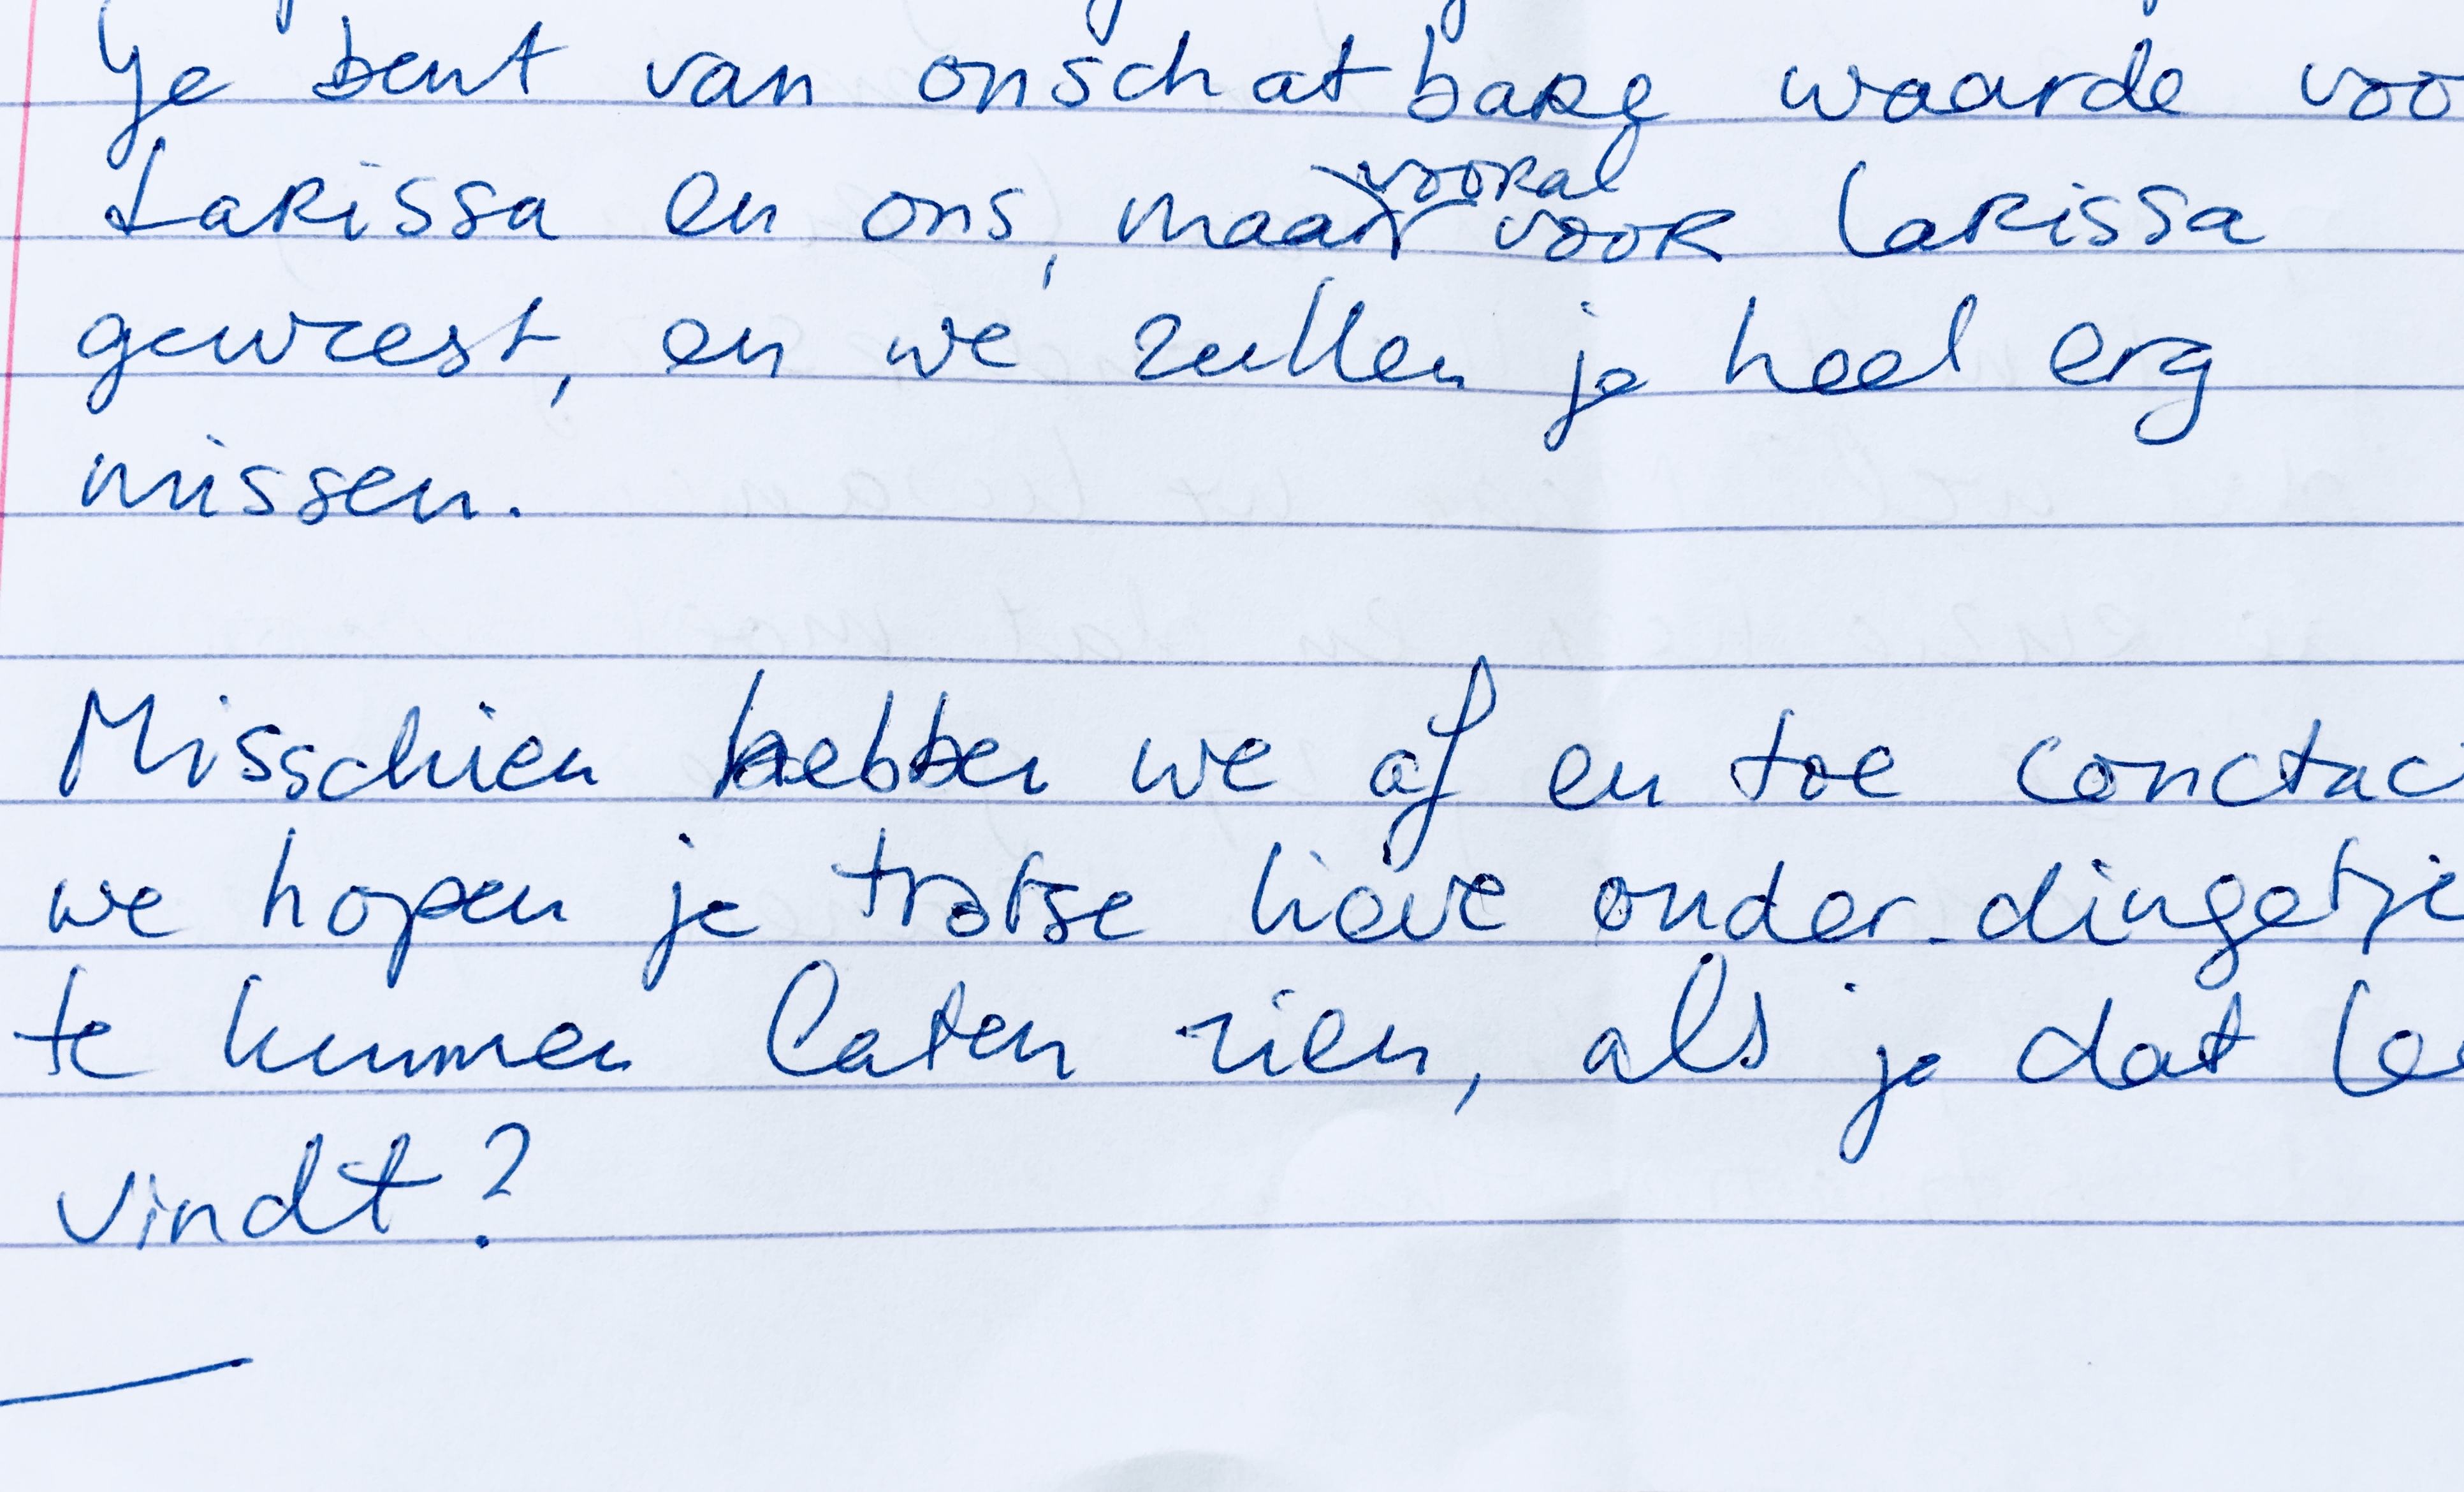 Je bent van onschatbare waarde voo
Larissa en ons, maar vooral voor Larissa
geweest, en we zullen je heel erg
missen.
Misschien hebben we af en toe conctac
we hopen je trotse lieve onder-dingetje
te kunnen laten zien, als je dat le
vindt?